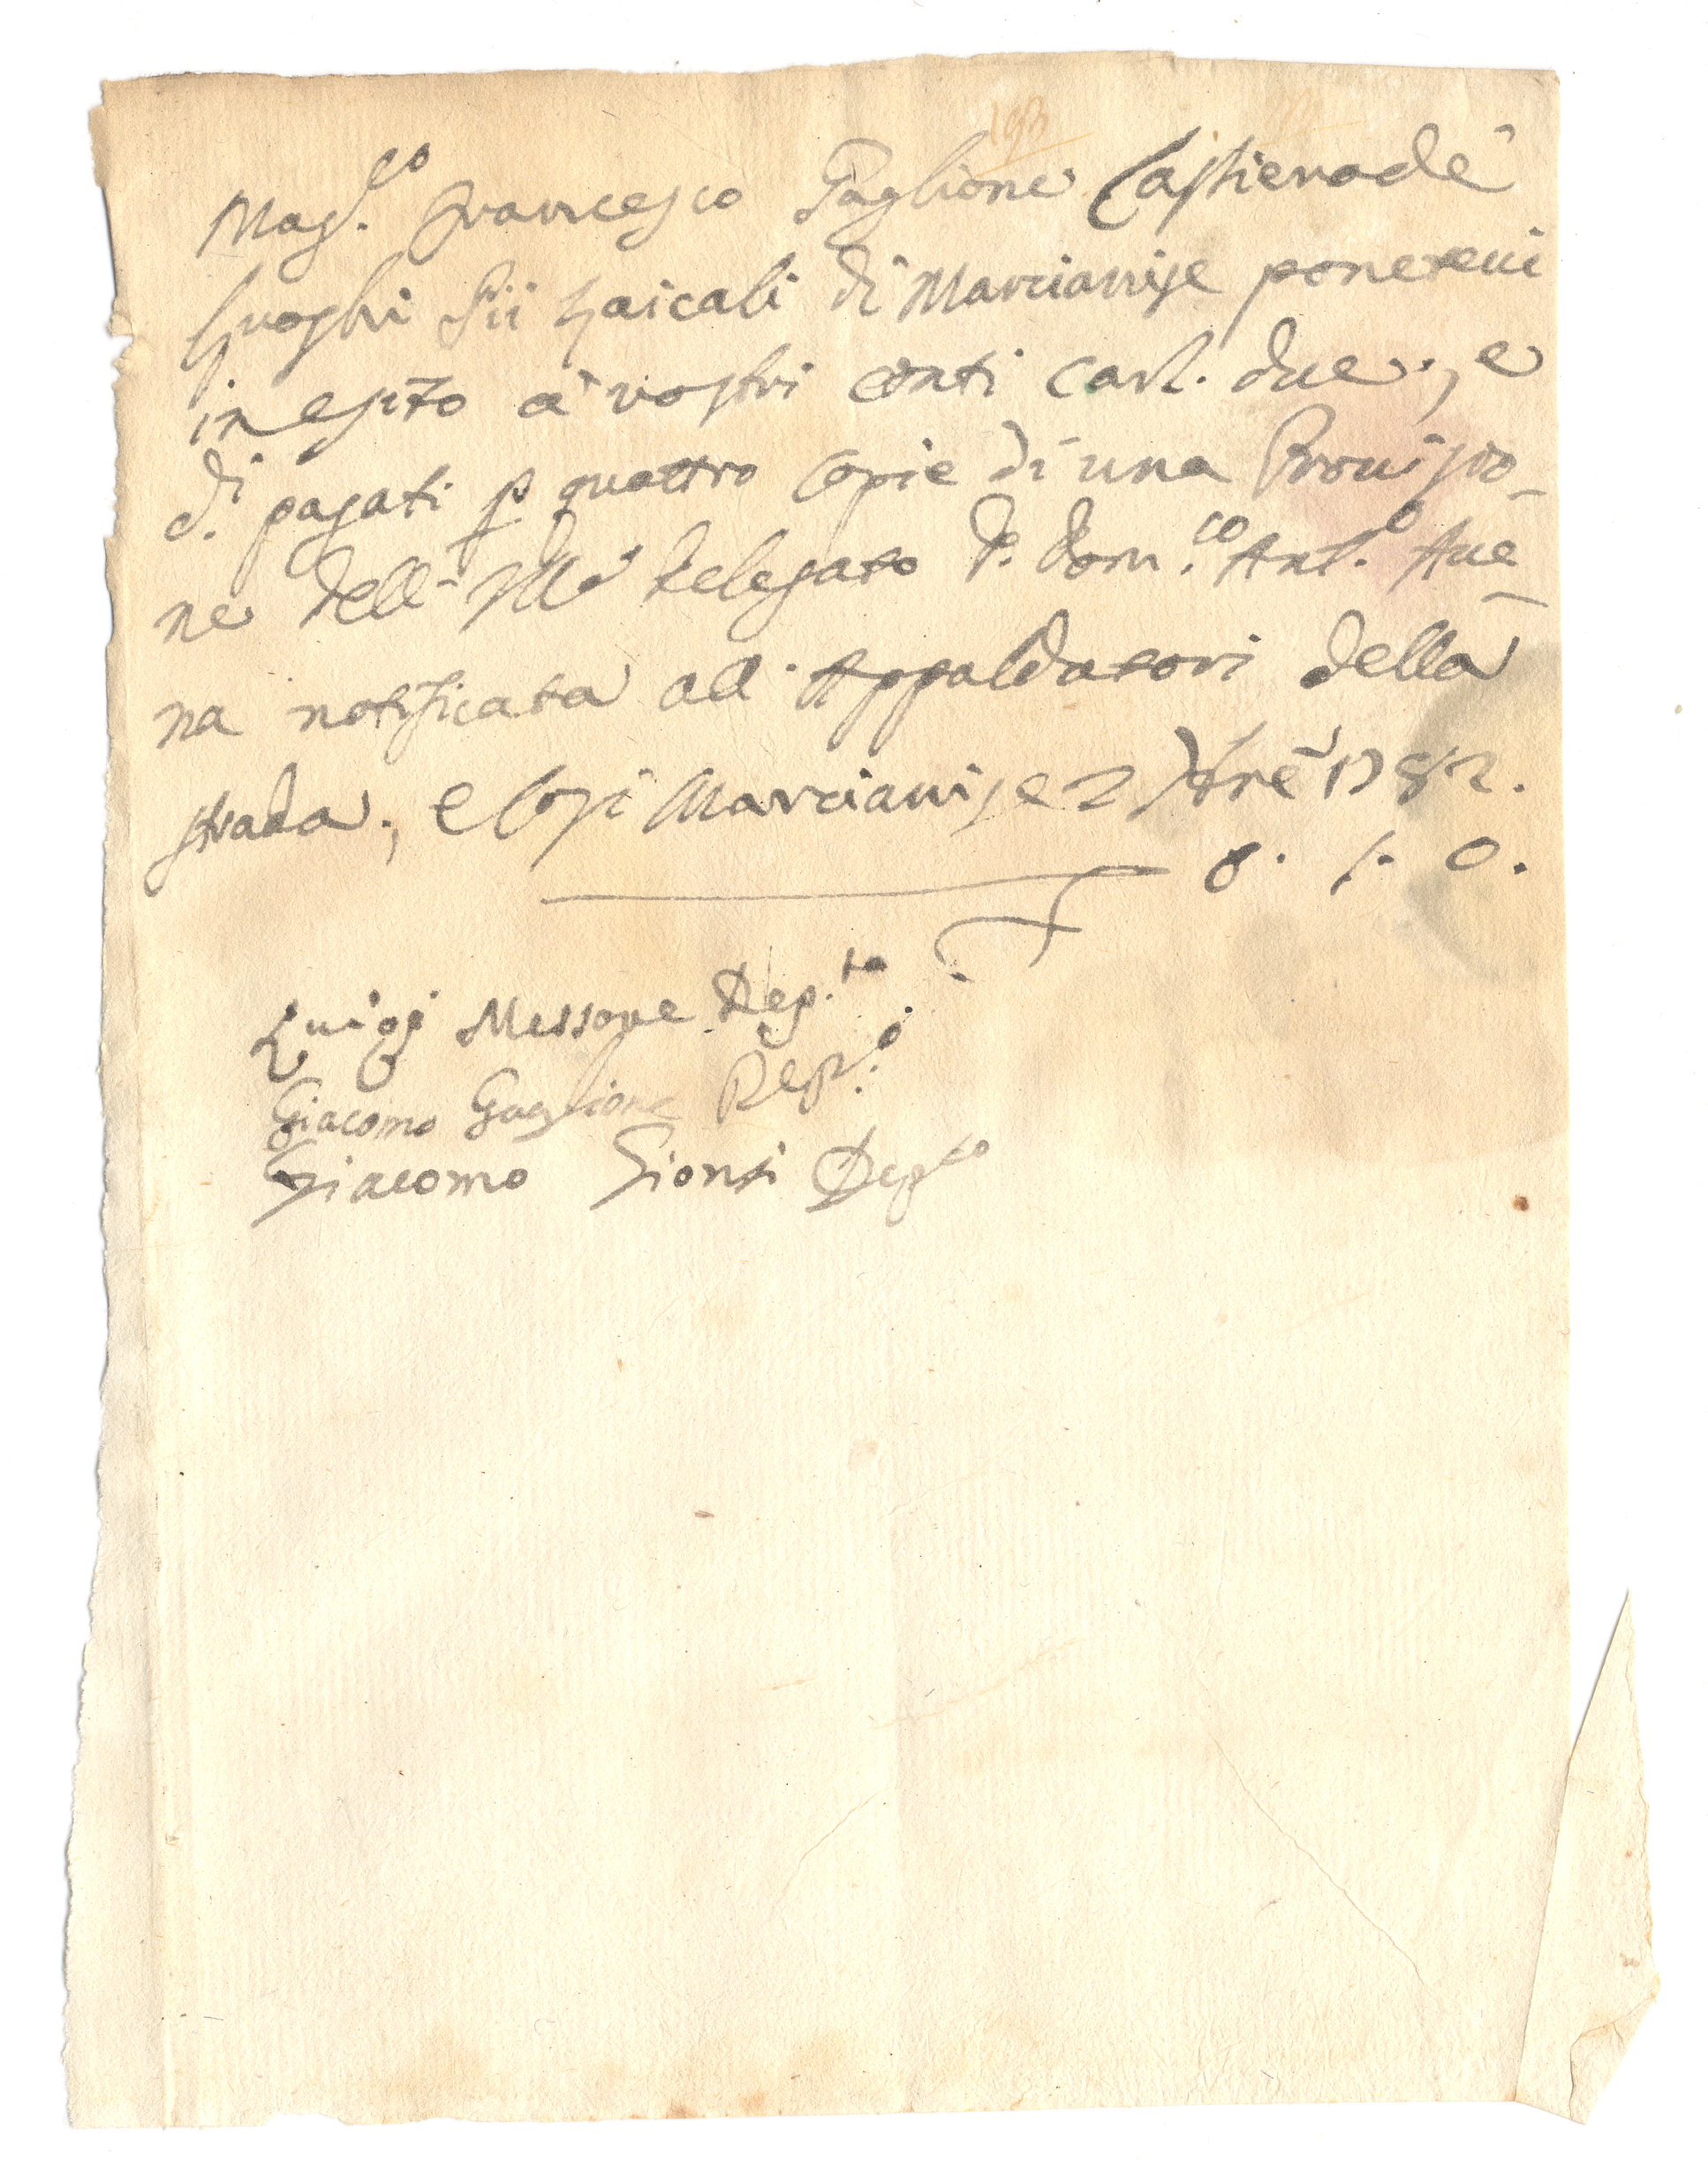 Mag.co Francesco Gaglione Cassiero de
Luoghi Pii Laicali di Marcianise ponerevi
in esito a' vostri conti carl. due, e
d.i pagati p quattro copie di una Provisio-
ne dell' Ill.e Delegato D. Dom.co Ant.o Ave-
na notificata all' Appaldatori della
strada, e Così Marcianise 2 Xbre 1782.
0. 1. 0.
Luigi Messore Dep.to
Giacomo Gaglione Dep.to
Giacomo Dep.to